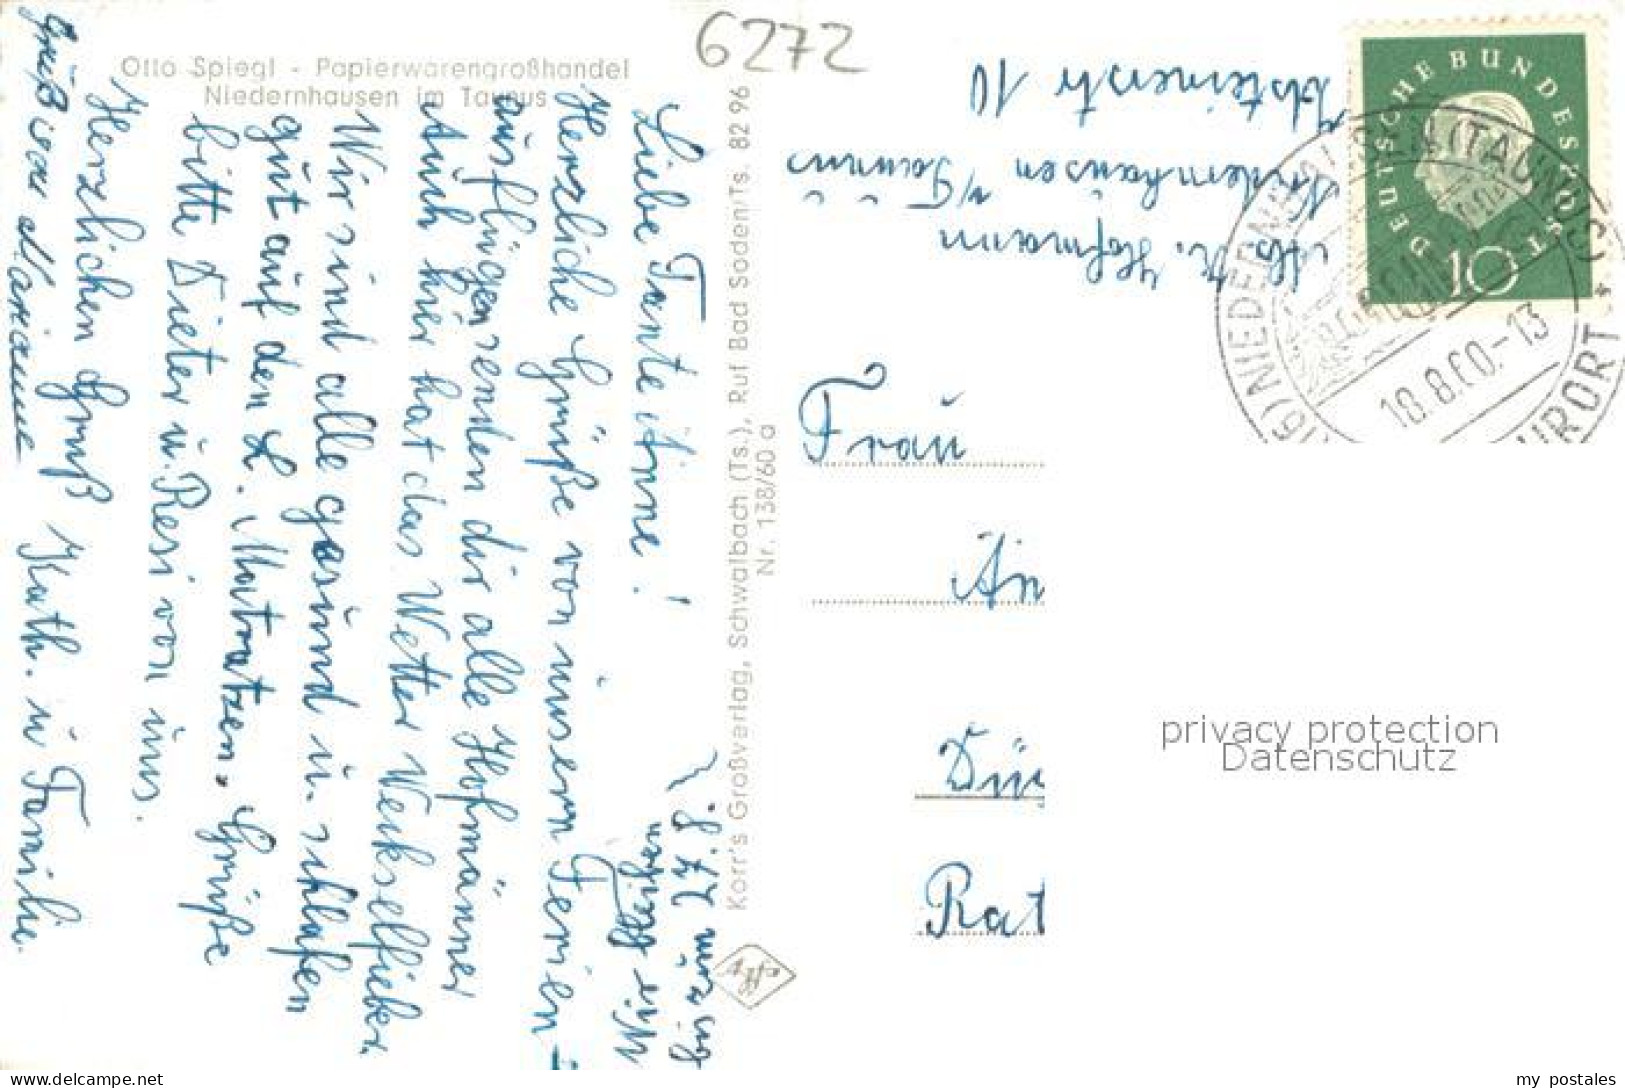 6272
Otto Spiegl - Papierwarengroßhandel
Niedernhausen im Taunus
Liebe Tante Änne!
Herzliche Grüße von unsern Ferien-
ausflügen senden dir alle Hofmänner
Auch hier hat das Wetter Wekselfieber.
Wir sind alle gesund u. schlafen
gut auf den L. Matratzen. Grüße
bitte Dieter u. Resi von uns.
Herzlichen Gruß Kath. u Familie.
Gruß von Marianne
Wir bleiben
bis zum 27.8.
Korr's Großverlag, Schwalbach (Ts.), Ruf Bad Soden/Ts. 82 96
Nr. 138/60 a
Abs. K. Hofmann
Niedernhausen i/Taunus
Idsteinerstr 10
DEUTSCHE BUNDESPOST
10
(16) NIEDERNHAUSEN (TAUNUS)
18.8.60.-13
LUFTKURORT
Frau
Än
Dü
Rat
privacy protection
Datenschutz
delcampe.net
my_postales